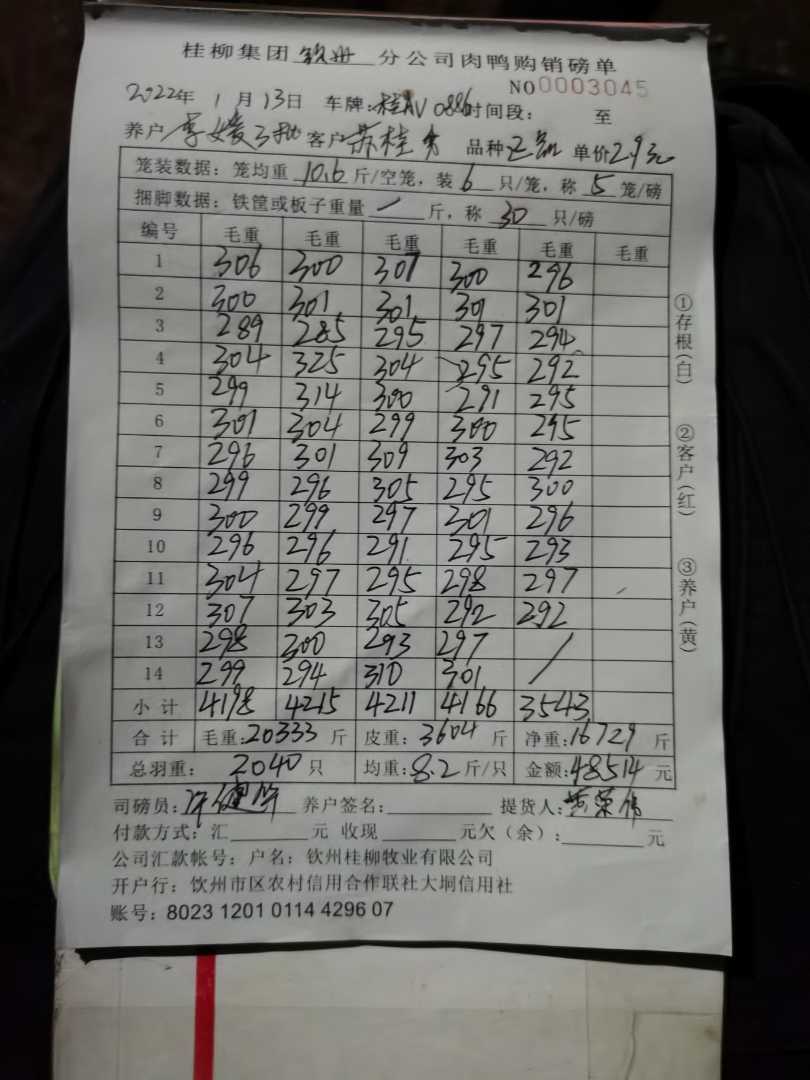 桂柳集团 钦州 分公司肉鸭购销磅单
NO 0003045
2022年 1月 13日 车牌: 桂AV 0886 时间段: 至
养户 李媛 客户 苏桂 品种 单价 2.9元
笼装数据: 笼均重 10.6 斤/空笼, 装 6 只/笼, 称 5 笼/磅
捆脚数据: 铁筐或板子重量 / 斤, 称 30 只/磅
编号 毛重 毛重 毛重 毛重 毛重 毛重
1 306 300 307 300 296
2 300 301 301 301 301
3 289 285 295 297 294
4 304 325 304 295 292
5 299 314 300 291 295
6 301 304 299 300 295
7 296 301 309 303 292
8 299 296 305 295 300
9 300 299 297 301 296
10 296 296 291 295 293
11 304 297 295 298 297
12 307 303 305 292 292
13 298 300 293 297 /
14 299 294 310 301 /
小计 4198 4215 4211 4166 3543
合计 毛重: 20333 斤 皮重: 3604 斤 净重: 16729 斤
总羽重: 2040 只 均重: 8.2 斤/只 金额: 48514 元
司磅员: 许健 养户签名: 提货人: 黄荣伟
付款方式: 汇 元 收现 元欠(余): 元
公司汇款帐号: 户名: 钦州桂柳牧业有限公司
开户行: 饮州市区农村信用合作联社大垌信用社
账号: 8023 1201 0114 4296 07
①存根(白) ②客户(红) ③养户(黄)